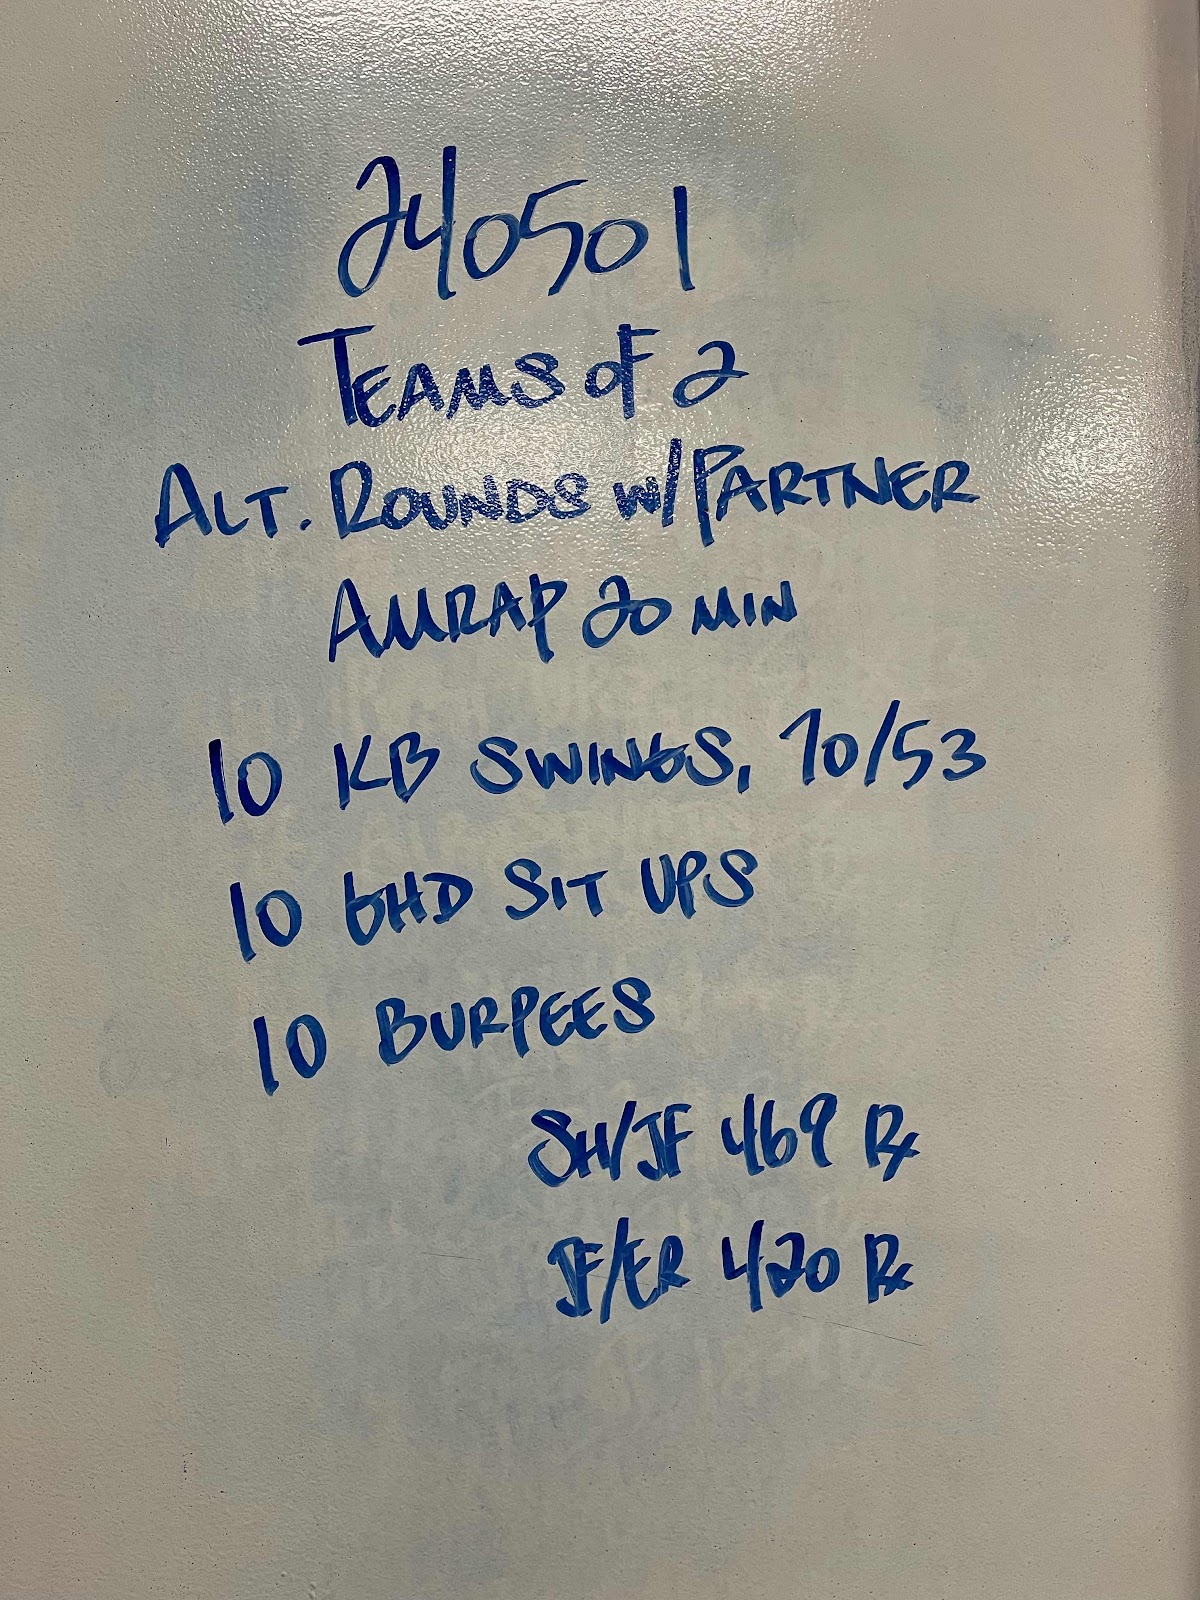 240501
TEAMS OF 2
ALT. ROUNDS W/PARTNER
AMRAP 20 MIN
10 KB SWINGS, 70/53
10 GHD SIT UPS
10 BURPEES
SH/JF 469 Rx
JF/ER 420 Rx